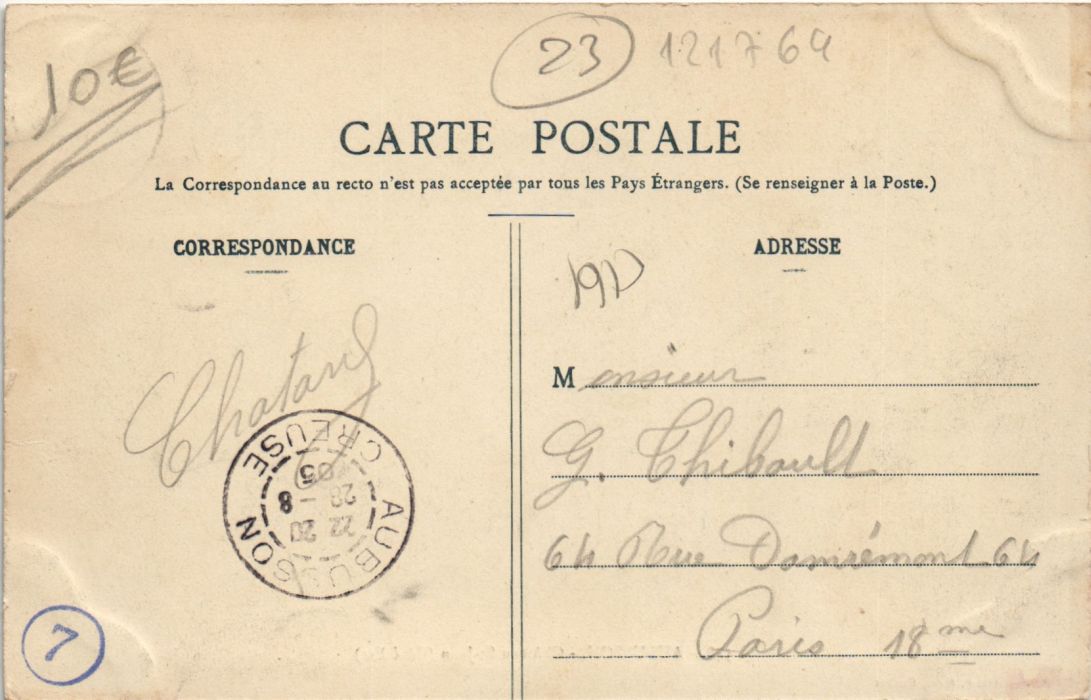 10€
23 121764
CARTE POSTALE
La Correspondance au recto n'est pas acceptée par tous les Pays Étrangers. (Se renseigner à la Poste.)
CORRESPONDANCE
ADRESSE
Monsieur
G. Thibault
64 Rue Damrémont 64
Paris 18me
AUBUSSON
CREUSE
22 20
28 - 8
05
7